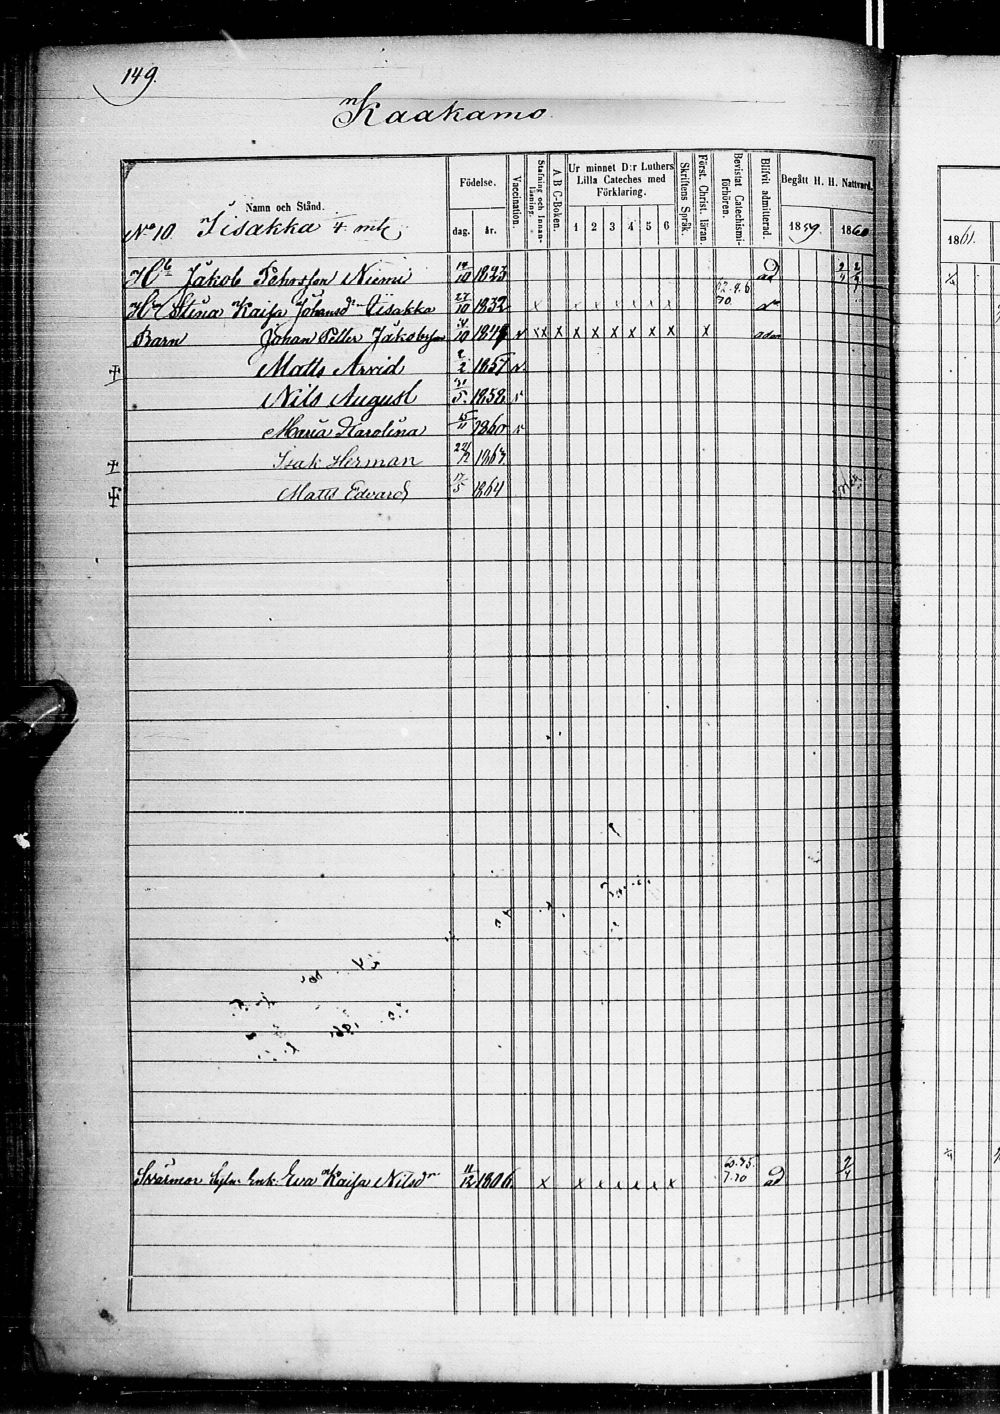 149.
Kaakamo
Namn och Stånd.
No 10. Iisakka 4 mtl
Födelse.
dag. år.
Vaccination.
Stafning och Innanläsning.
A B C-Boken.
Ur minnet D:r Luthers Lilla Cateches med Förklaring.
1 2 3 4 5 6
Skriftens Språk.
Först. Christ. läran.
Bevistat Catechismiförhören.
Blifvit admitterad.
Begått H. H. Nattvard.
1859. 1860
1861.
Jakob Niemi 10 1823 ad 2/4
Stina Kaisa Johansd:r Iisakka 27/10 1832 x 70
Barn Johan Petter Jakobsson 10 1849 v x x x x x x x x x x
Matts Arvid 2/2 1857 v
Nils August 31/5 1858 v
Maria Karolina 15/11 1860 v
Isak Herman 22/12 1863
Matts Edvard 17/5 1864
Enk. Eva Kaisa Nilsd:r 11/12 1806 x x x x x x x 60.75. 7.70 ad 2/4